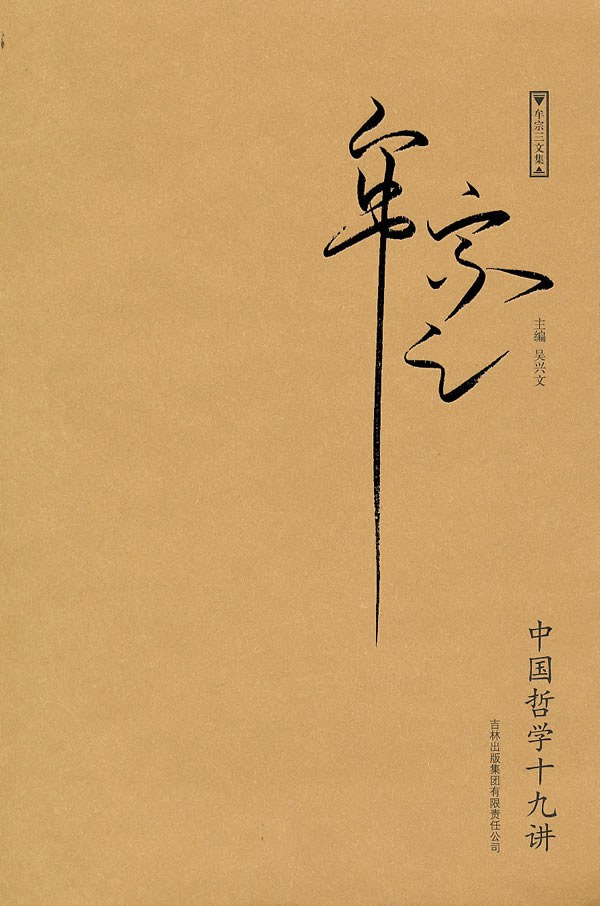 牟宗三文集
牟宗三
主编 吴兴文
中国哲学十九讲
吉林出版集团有限责任公司